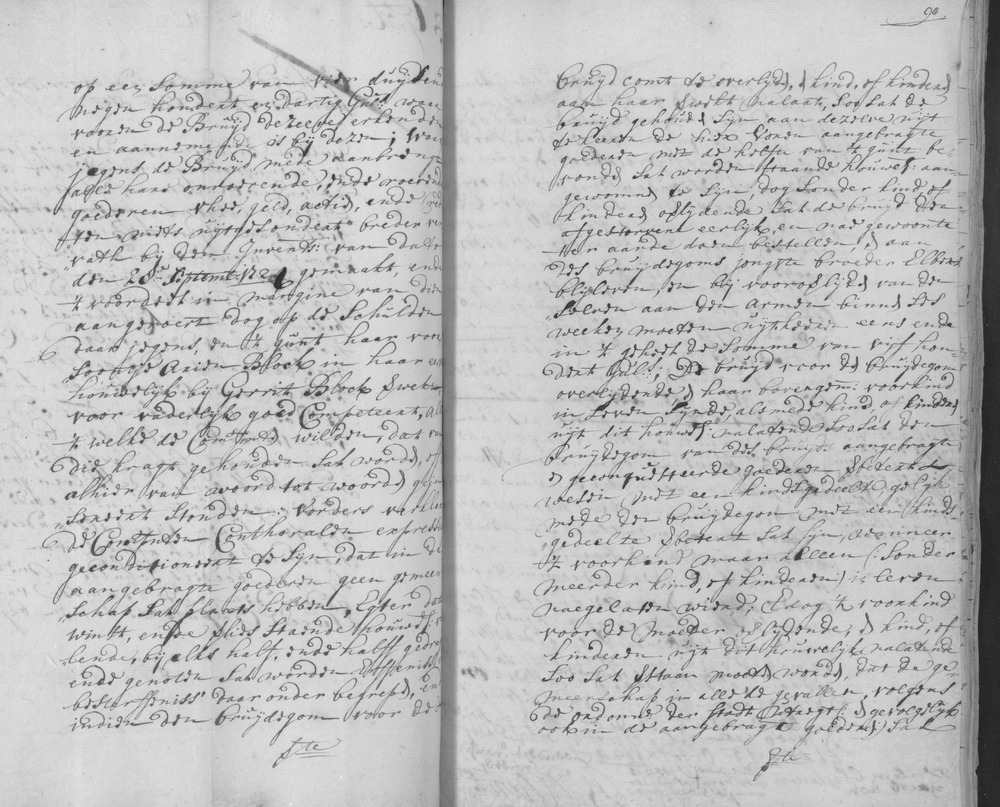 op een Somme van vier duijsend
negen hondert en dartig Guls waer
vooren de Bruijd dezelve erkende
en aannemende is bij dezen; Waar
jegens de Bruijd mede aanbrengt
alle haar onroerende, ende roerende
goederen vhee, geld, actien, ende
ten niets uijtgesondert breder ver
vath bij den Invents: van dato
den 28en Septembr gemaakt, ende
't voordeel in margine van dien
aangevoert dog op de Schulden
daar jegens, en 't gunt haar voor
Soontje Arien Block in haar eer
houwelijk bij Gerrit Block Verwekt
voor vaderlijk goed Competeert, al
't welke de Comtten wilden, dat van
die kragt gehouden sal worden, of
alhier van woord tot woorden ge
insereert stonden; Vorders verklaren
de Comtten Conthoralen expresse
geconditioneert te sijn, dat in de
aangebragte goederen geen gemeen
schap sal plaats hebben, Egter dat
winst, ende verlies staende houwelijk
bende, bij elks half, ende half, gedra
ende genoten sal worden Erffenisse
besterffeniss daar onder begrepen, en
indien den bruijdegom voor de
Ste
90
bruijd comt te overlijden, kind, of kinderen
aan haar Verwekt nalaat, Soo Sal de
bruijd gehouden Sijn aan dezelve uijt
te keeren de hier vooren aangebragte
goederen met de helfte van 't gunt be
vonden sal worden staande houwel: aan
gewonnen te Sijn dog Sonder kind of
kinderen overlijdende Sal de bruijd den
afgestorvene eerlijk, en naer gewoonte
ter aarde doen bestellen, en aan
des bruijdegoms jongste broeder
blijkeren, en bij vooroverlijden van den
Selven aan den armen binnen ses
weeken moeten uijtkeeren eens ende
in 't geheel de Somme van vijf hon
dert guls; De bruijd voor de bruijdegom
overlijdende, en haar bovengem: voorkind
in leven Sijnde alsmede kind of kinderen
uijt dit houwel: nalatende Soo Sal den
bruijdegom van des bruijds aangebragte
en geconquesteerde goederen Vrerekt
wesen met een kindsgedeelte gelijk
mede den bruijdegom met een kinds
gedeelte Sal Sijn, wanneer
't voorkind maar alleen (: Sonder
meerder kind, of kinderen) in leven
naegelaten wierd; Edog 't voorkind
voor de moeder overlijdende, en kind, of
kinderen uijt dit houwelijk nalatende
Soo Sal Verstaan moeten worden, dat de ge
meenschap in alle de gevallen, volgens
de ordonne der Stadt Utregt: en gevolgelijk
ook in de aangebragte goederen) Sal
Ste